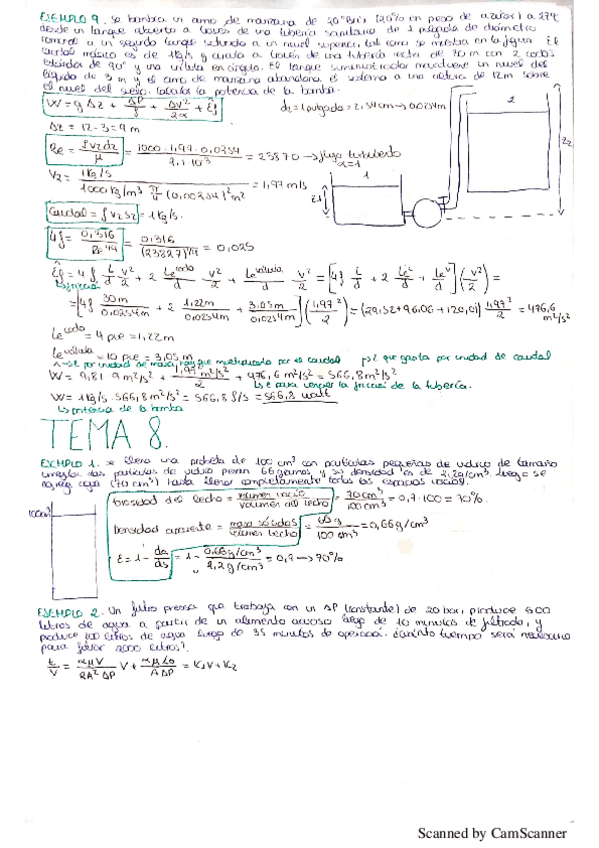 EJEMPLO 9. Se bombea un zumo de manzana de 20°Brix (20% en peso de azúcar) a 27°C
desde un tanque abierto a través de una tubería sanitaria de 1 pulgada de diámetro
nominal a un segundo tanque situado a un nivel superior, tal como se muestra en la figura. El
caudal másico es de 1 kg/s y circula a través de una tubería recta de 30 m con 2 codos
estándar de 90° y una válvula en ángulo. El tanque suministrador mantiene un nivel del
líquido de 3 m y el zumo de manzana abandona el sistema a una altura de 12m sobre
el nivel del suelo. Calcular la potencia de la bomba.
W = g Δz + ΔP/ρ + ΔV²/2α + Êf
d₂ = 1 pulgada = 2,54cm → 0,0254m
Δz = 12-3 = 9 m
Re = ρV₂d₂/μ = 1000·1,97·0,0254/2,1·10⁻³ = 23870 → flujo turbulento
α=1
V₂ = 1Kg/s / 1000Kg/m³ π/4 (0,00254)²m² = 1,97 m/s
Caudal = ρV₂S₂ = 1Kg/s.
4f = 0,316/Re^1/4 = 0,316/(23827)^1/4 = 0,025
Êf = 4f L/d V²/2 + 2 Le^codo/d V²/2 + Le^válvula/d V²/2 = [4f L/d + 2 Le^c/d + Le^v/d] (V²/2) =
↳ fricción
= [4f 30m/0,0254m + 2 1,22m/0,0254m + 3,05m/0,0254m] (1,97²/2) = (29,52+96,06+120,01) 1,97²/2 = 476,6 m²/s²
Le^codo = 4 pie = 1,22m
Le^válvula = 10 pie = 3,05 m
W = 9,81·9 m²/s² + 1,97² m²/s²/2 + 476,6 m²/s² = 566,8 m²/s²
↳ E para vencer la fricción de la tubería.
W = 1Kg/s · 566,8 m²/s² = 566,8 J/s = 566,8 watt
↳ potencia de la bomba
1
2
z1
z2
TEMA 8.
EJEMPLO 1. Se llena una probeta de 100 cm³ con partículas pequeñas de vidrio de tamaño
irregular. Las partículas de vidrio pesan 66 gramos y su densidad es de 2,2g/cm³. Luego se
agrega agua (70 cm³) hasta llenar completamente todos los espacios vacíos.
100cm³
Porosidad del lecho = volumen vacío/volumen del lecho = 70cm³/100cm³ = 0,7·100 = 70%.
Densidad aparente = masa sólidos/volumen lecho = 66g/100 cm³ = 0,66g/cm³
ε = 1 - da/ds = 1 - 0,66g/cm³/2,2g/cm³ = 0,7 → 70%
EJEMPLO 2. Un filtro prensa que trabaja con un ΔP (constante) de 20 bar, produce 500
litros de agua a partir de un alimento acuoso luego de 10 minutos de filtrado, y
produce litros de agua luego de 35 minutos de operación. ¿Cuánto tiempo será necesario
para filtrar 2000 litros?
t/V = αμV/2A²ΔP V + αμL₀/AΔP = K₁V+K₂
Scanned by CamScanner